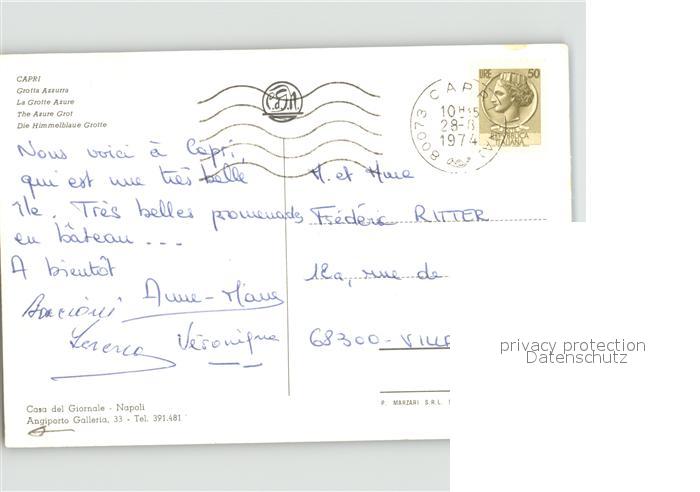 CAPRI
Grotta Azzurra
La Grotte Azure
The Azure Grot
Die Himmelblaue Grotte
Nous voici à Capri,
qui est une très belle
île. Très belles promenades
en bâteau ...
A bientôt
Anne-Marie
Véronique
Casa del Giornale - Napoli
Angiporto Galleria, 33 - Tel. 391.481
80073 CAPRI
10H-15
28-8
1974
LIRE 50
REPUBBLICA
ITALIANA
M. et Mme
Frédéric RITTER
12a, rue de
68300-VILL
P. MARZARI S.R.L.
privacy protection
Datenschutz